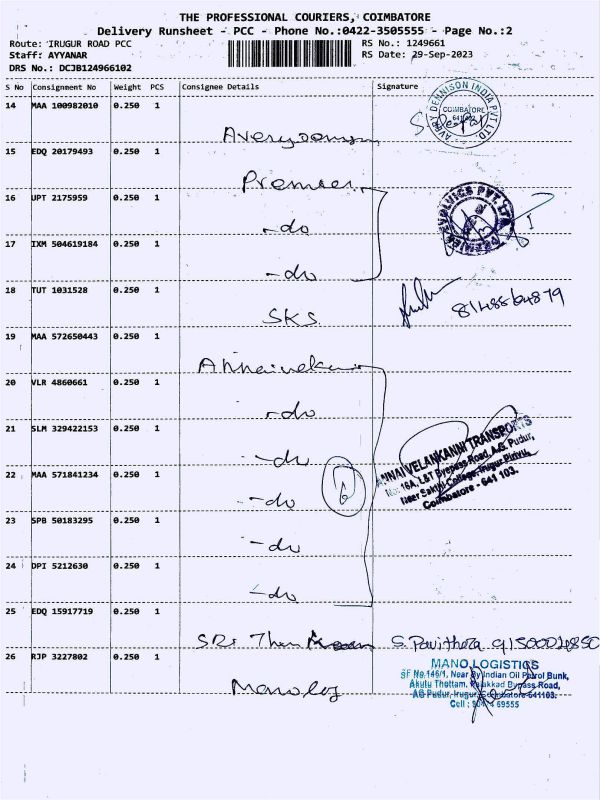 THE PROFESSIONAL COURIERS, COIMBATORE
Delivery Runsheet - PCC - Phone No.:0422-3505555 - Page No.:2
Route: IRUGUR ROAD PCC RS No.: 1249661
Staff: AYYANAR RS Date: 29-Sep-2023
DRS No.: DCJB124966102
S No Consignment No Weight PCS Consignee Details Signature
14 MAA 100982010 0.250 1
AVERY DENNISON INDIA PVT LTD
COIMBATORE
15 EDQ 20179493 0.250 1
Premier
16 UPT 2175959 0.250 1
-do
17 IXM 504619184 0.250 1
-do
18 TUT 1031528 0.250 1
SKS. 8148564879
19 MAA 572650443 0.250 1
20 VLR 4860661 0.250 1
-do
21 SLM 329422153 0.250 1
-do
ANNAI VELANKANNI TRANSPORTS
No: 16A, L&T Byepass Road, A.G. Pudur,
Near Sakthi College, Irugur Pirivu,
Coimbatore - 641 103.
22 MAA 571841234 0.250 1
-do
6
23 SPB 50183295 0.250 1
-do
24 DPI 5212630 0.250 1
-do
25 EDQ 15917719 0.250 1
SRi S. Pavithra
26 RJP 3227802 0.250 1
Mano Log
MANO LOGISTICS
SF No.146/1, Near By Indian Oil Petrol Bunk,
Akulu Thottam, Palakkad Bypass Road,
AG Pudur, Irugur, Coimbatore-641103.
Cell : 69555